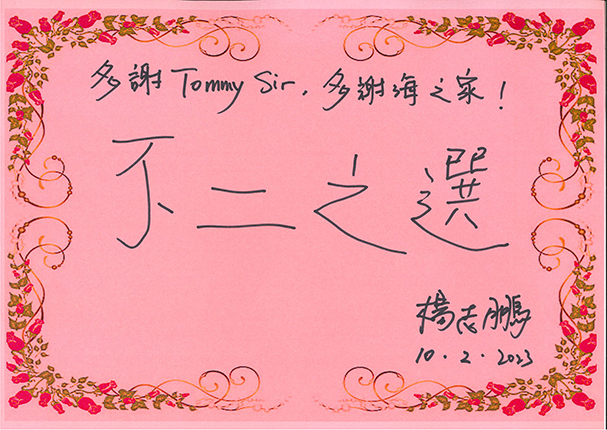 多謝 Tommy Sir, 多謝海之家!
不二之選
楊志鵬
10.2.2023